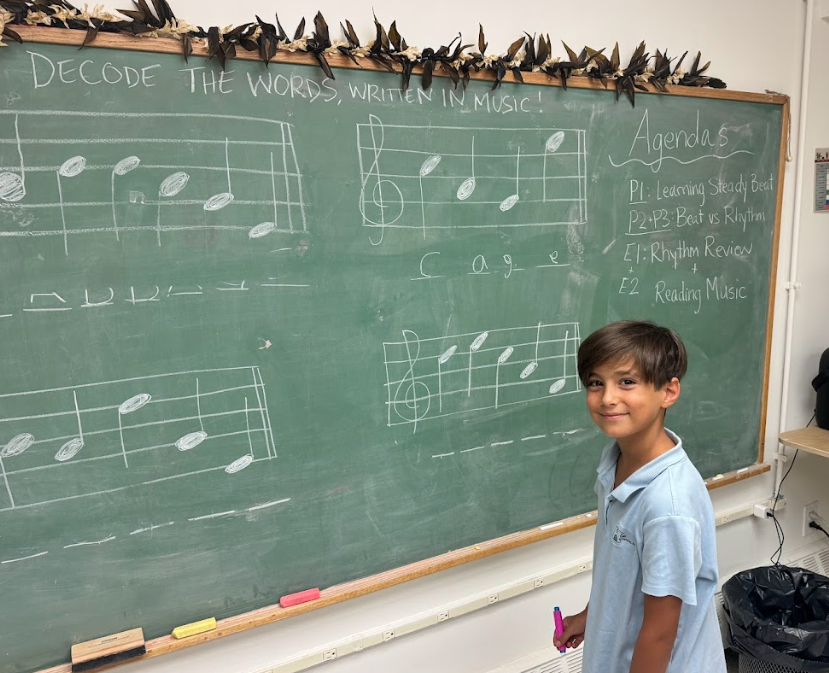 DECODE THE WORDS, WRITTEN IN MUSIC!
Agendas
P1: Learning Steady Beat
P2+P3: Beat vs Rhythm
E1: Rhythm Review
+ +
E2 Reading Music
c a g e